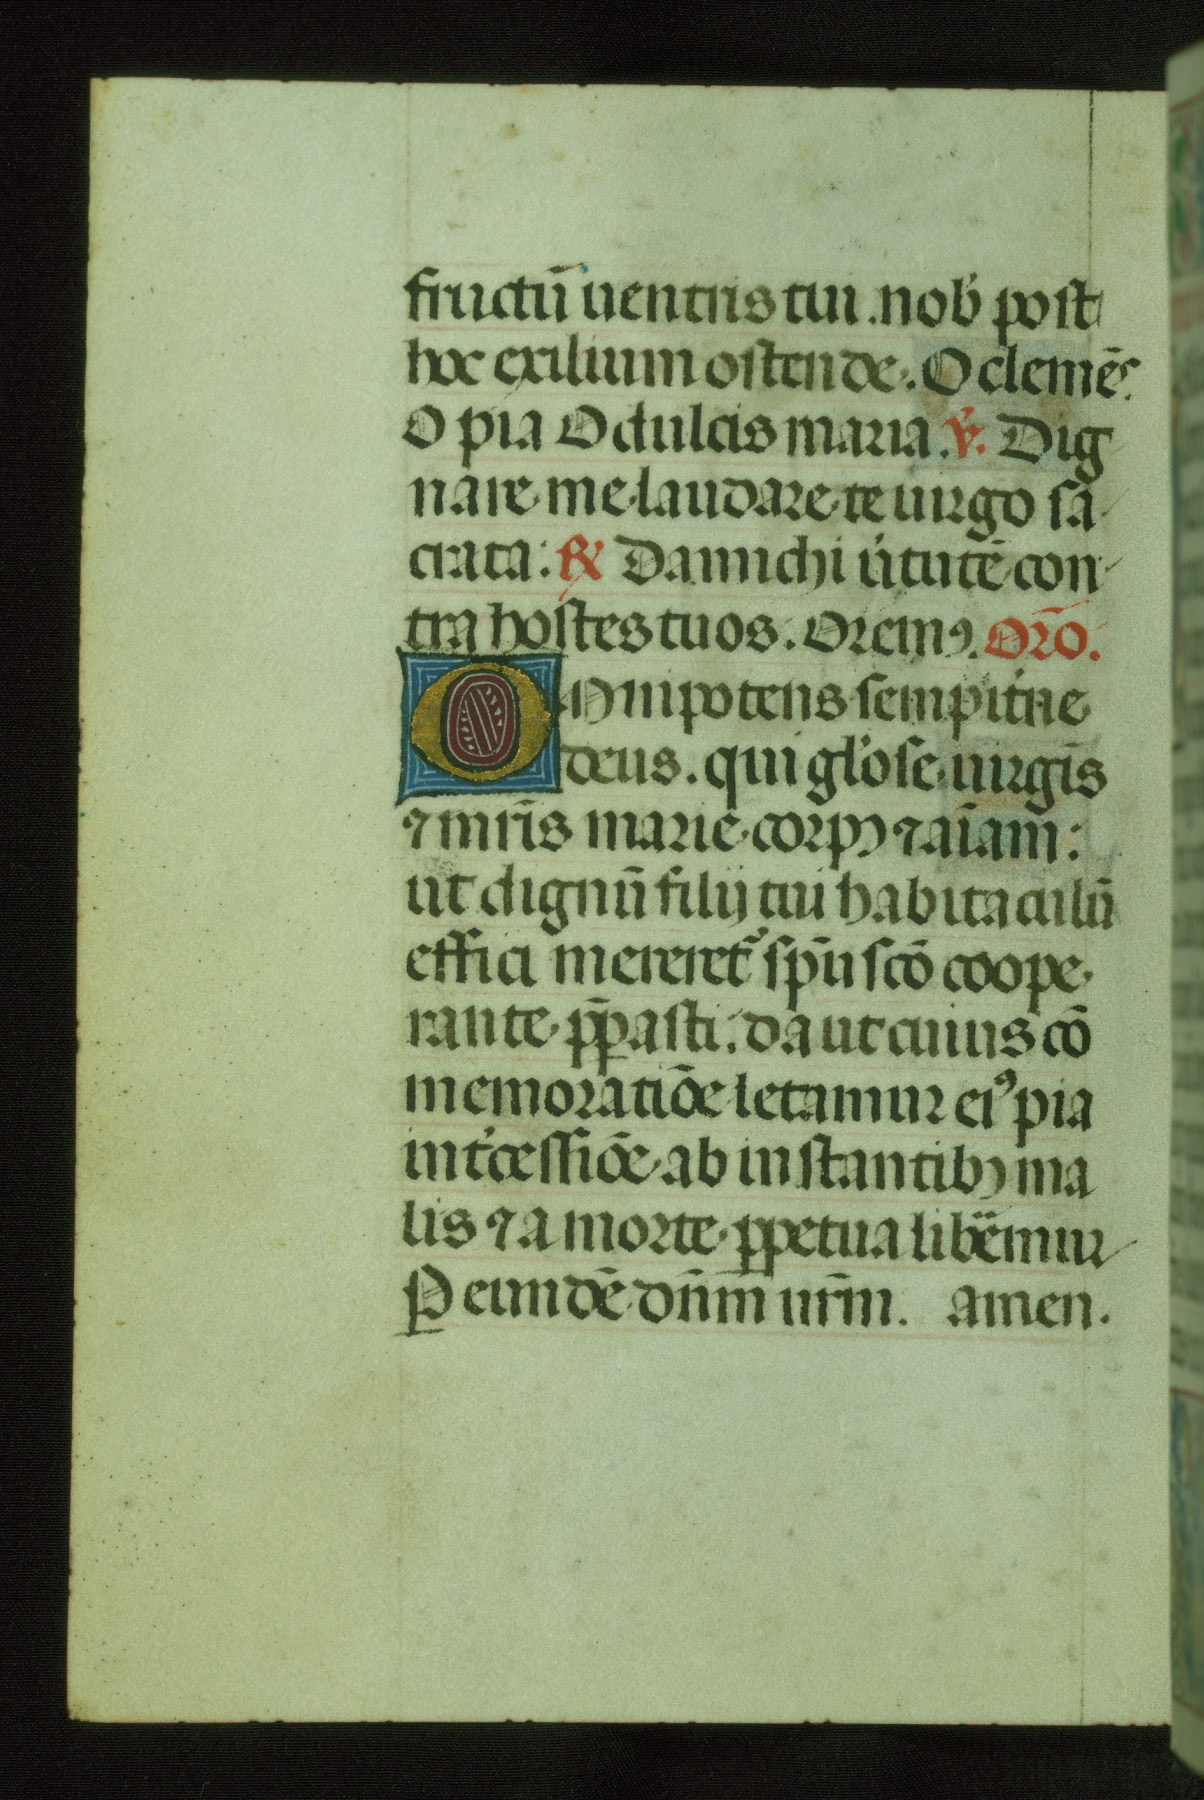 fructū uentris tui. nob̛ post
hoc exilium ostende. O clemēs.
O pia O dulcis maria. ℣. Dig
nare me laudare te uirgo sa
crata: ℟ Da michi u̓tutē con
tra hostes tuos. Oremꝯ. Orō.
Omnipotens sempit̓ne
deus. qui gl̓ose uirgīs
⁊ mr̄is marie corpꝫ ⁊ aīam:
ut dignū filij tui habitaculū
effici mereret᷑ sp̄u scō coope
rante p̄pasti: da ut cuius cō
memoratiōe letamur eiꝰ pia
int̓cessiōe ab instantibꝫ ma
lis ⁊ a morte ꝑpetua libēmur
Ꝑ eundē dn̄m nr̄m. amen.